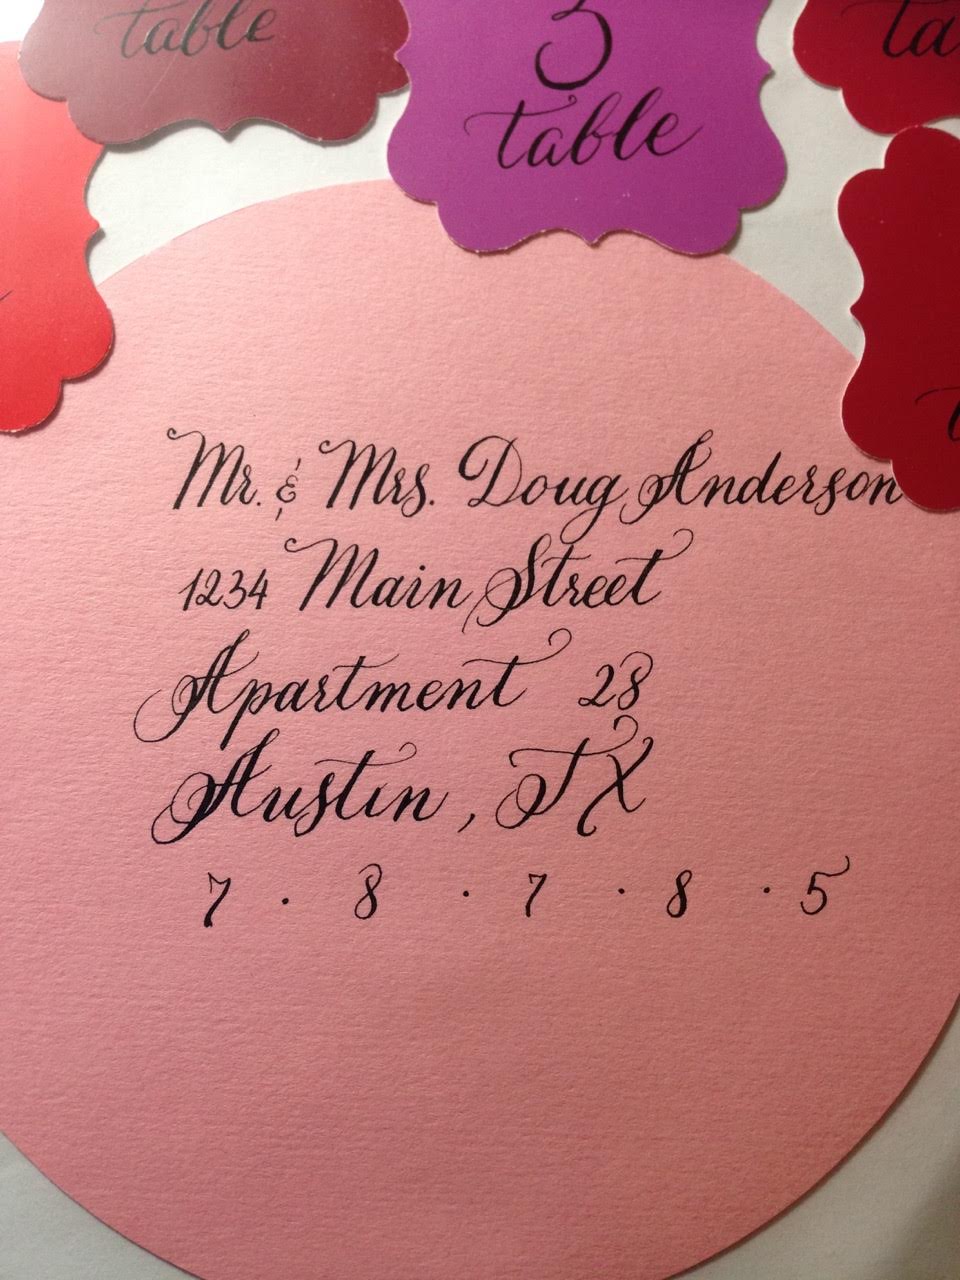 table
3
table
Mr. & Mrs. Doug Anderson
1234 Main Street
Apartment 28
Austin, TX
7 · 8 · 7 · 8 · 5